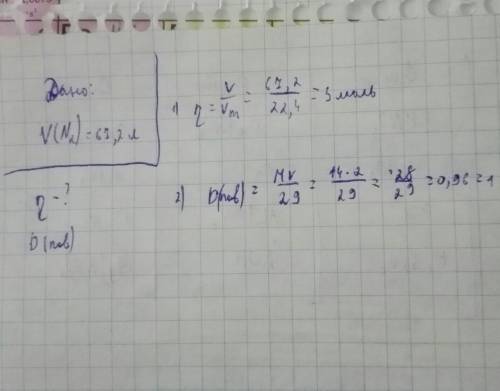 Дано:
V(N₂) = 67,2 л
η - ?
D(пов)
1) η = V/Vm = 67,2/22,4 = 3 моль
2) D(пов) = Mr/29 = 14·2/29 = 28/29 = 0,96 = 1